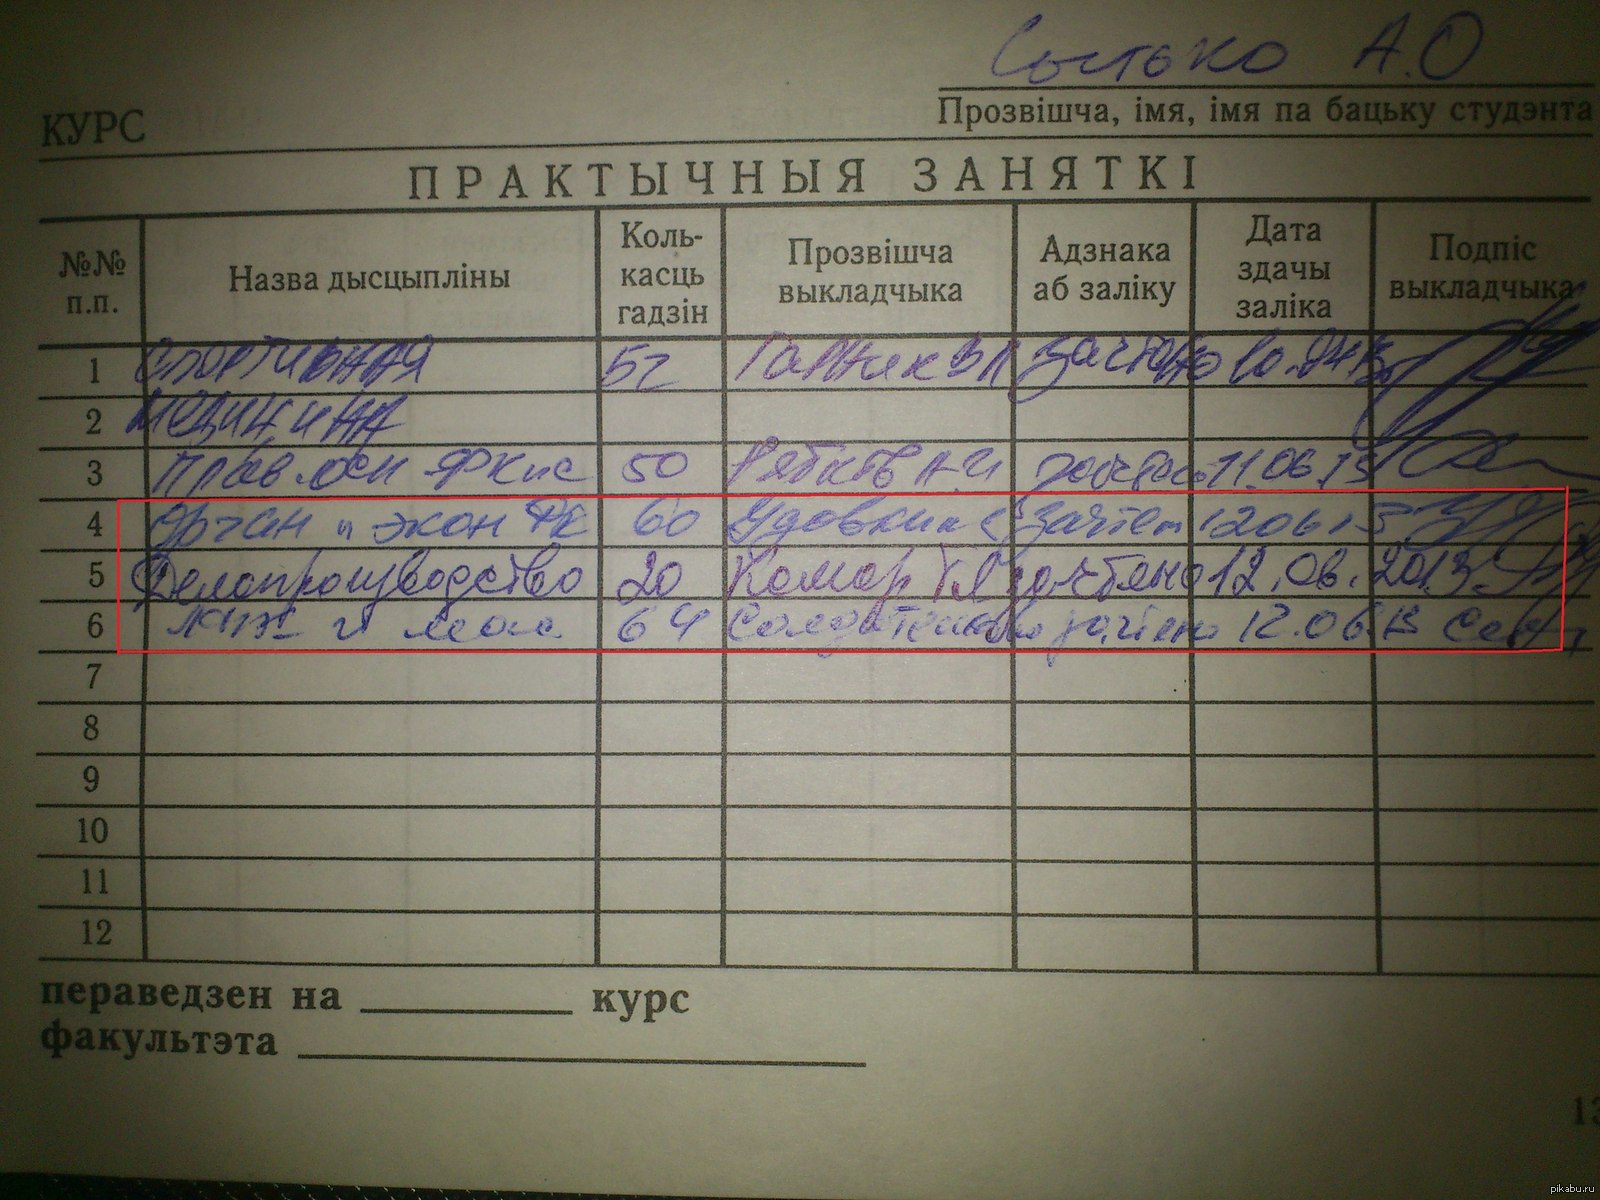 Сытько А.О
КУРС
Прозвішча, імя, імя па бацьку студэнта
ПРАКТЫЧНЫЯ ЗАНЯТКІ
№№ п.п. Назва дысцыпліны Коль-касць гадзін Прозвішча выкладчыка Адзнака аб заліку Дата здачы заліка Подпіс выкладчыка
1 Спортивная зачтено
2 медицина
3 50 зачтено 11.06.13
4 Орган и экон ФК 60 зачтен 12 06 13
5 Делопроизводство 20 Комар зачтено 12.06.2013
6 64 зачтено 12.06.13
7
8
9
10
11
12
пераведзен на курс
факультэта
13
pikabu.ru